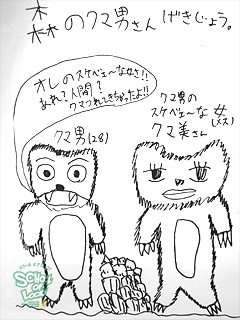 森のクマ男さん げきじょう。
オレの
スケベェ〜な女さ!!
あれ?人間?
クマつれてきちゃったよ!!
クマ男(28)
クマ男の
スケベェ〜な女(メス)
クマ美さん
SCHOOL OF LOCK!